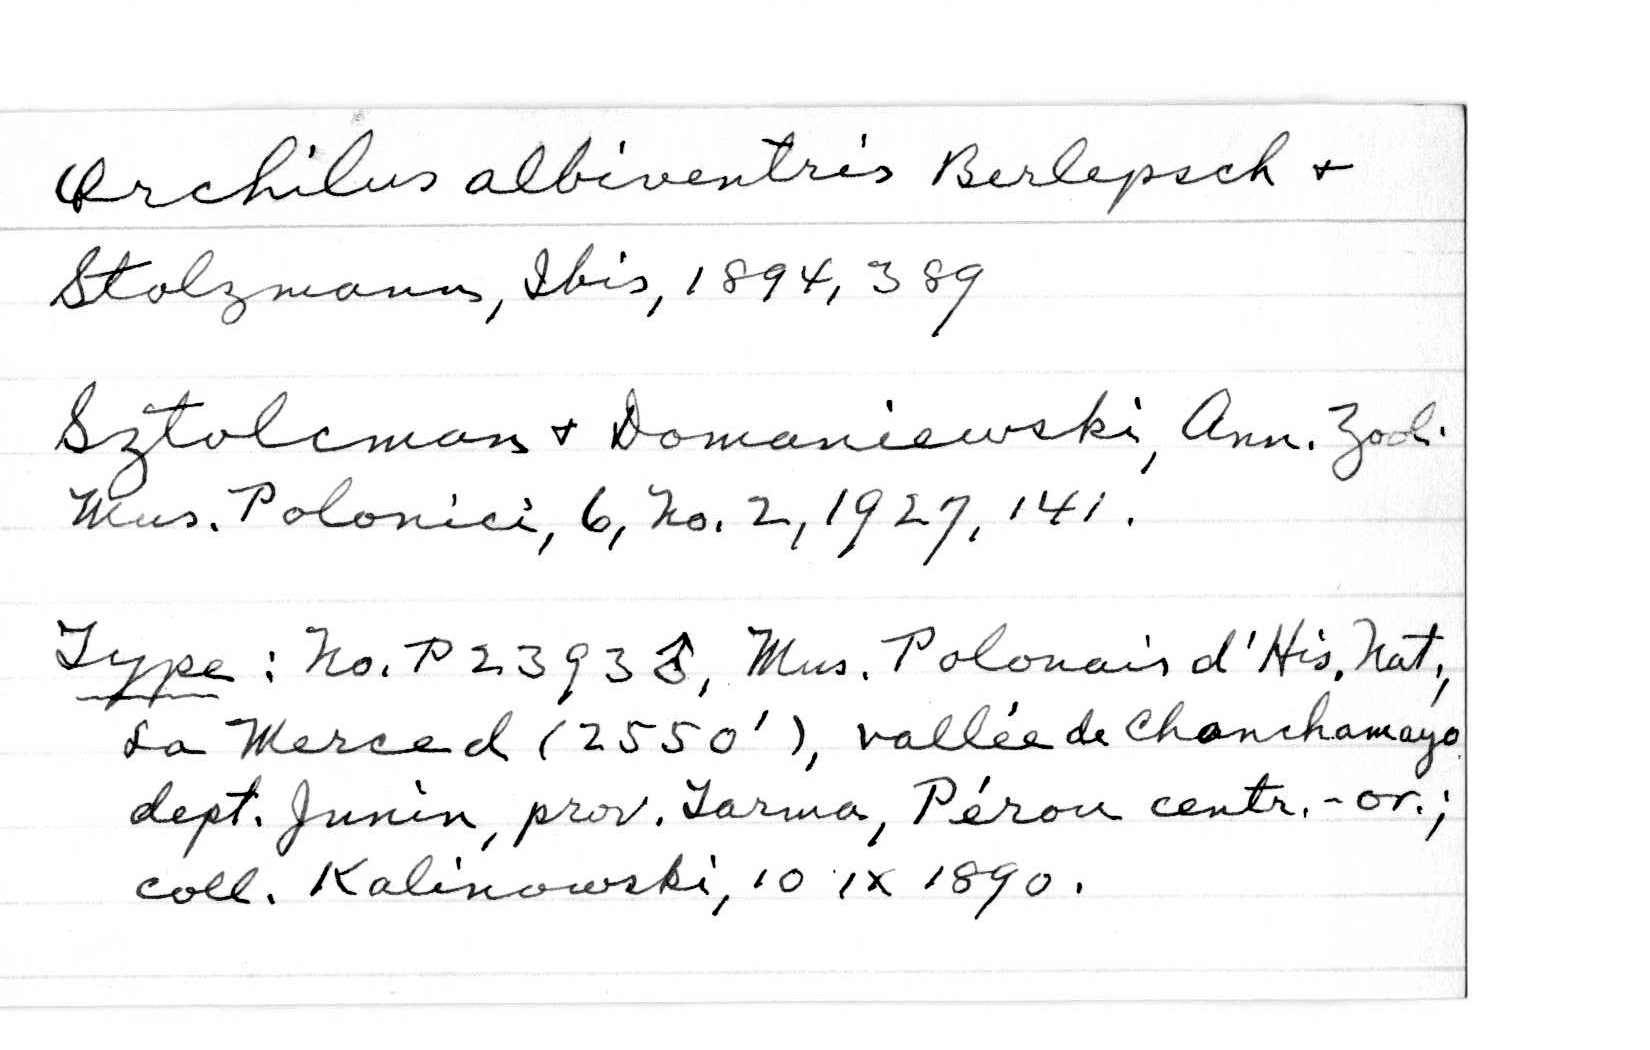 Orchilus albiventris Berlepsch +
Stolzmann, Ibis, 1894, 389
Sztolcman + Domaniewski, Ann. Zool.
Mus. Polonici, 6, No. 2, 1927, 141.
Type: No. P 2393 ♂, Mus. Polonais d'His. Nat.,
La Merced (2550'), vallée de Chanchamayo
dept. Junin, prov. Tarma, Pérou centr.-or.;
coll. Kalinowski, 10 IX 1890.